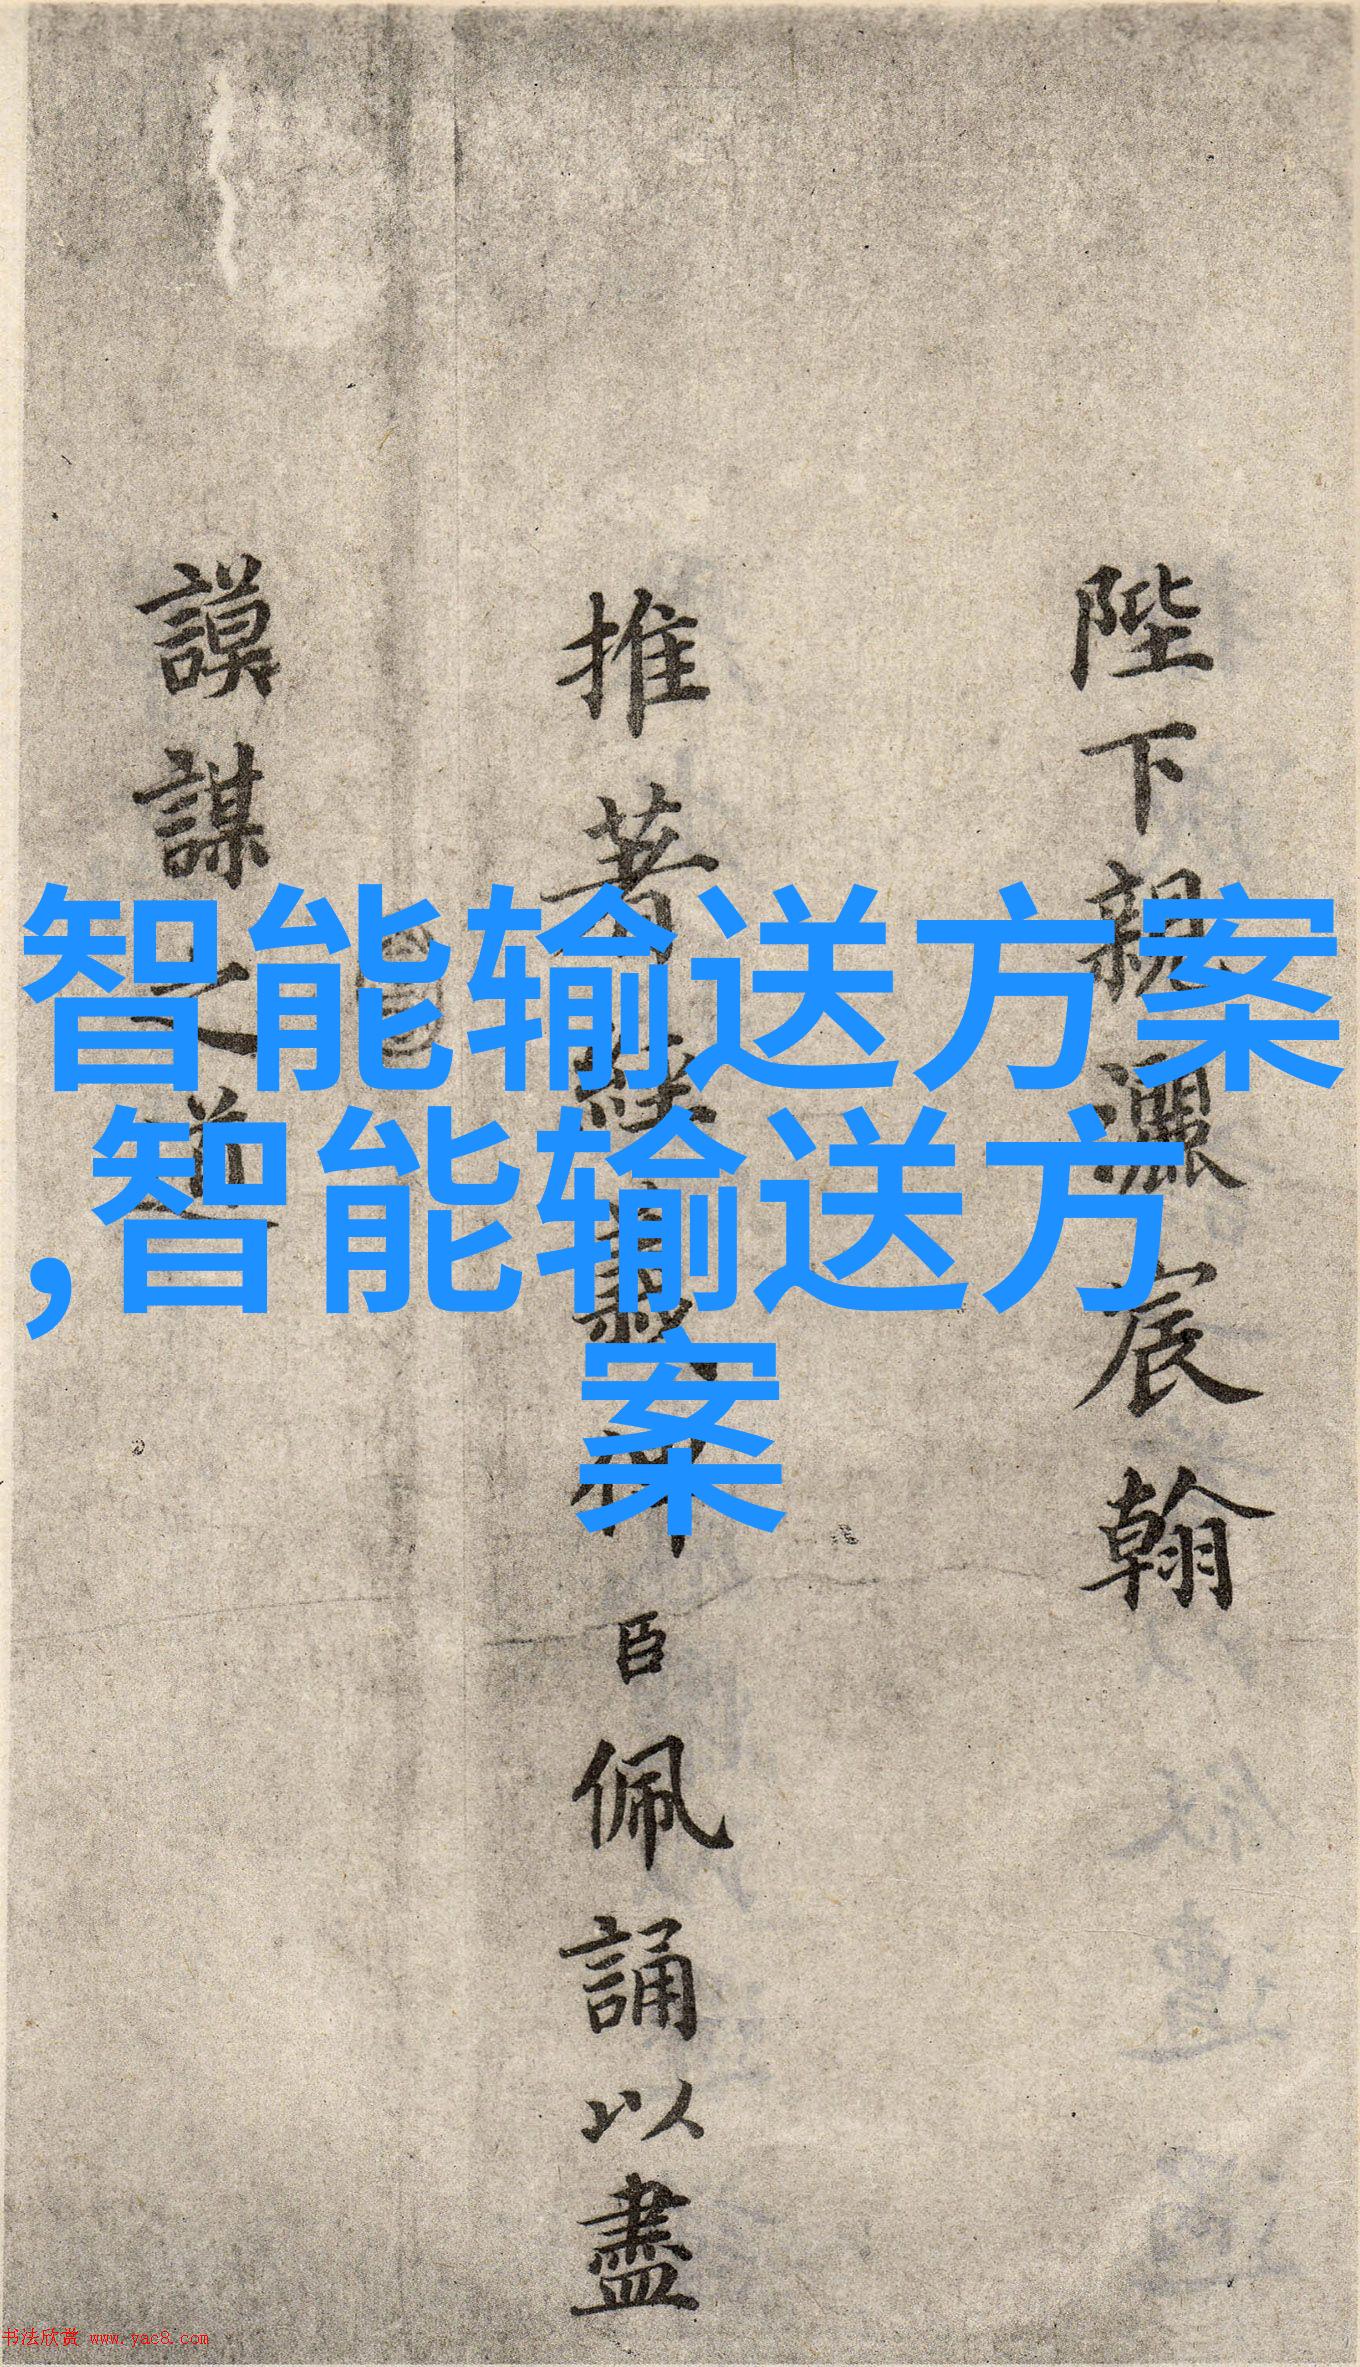 陛下親灑宸翰
推著經義俾臣佩誦以盡
謨謀之道
智能输送方案
,智能输送方
案
书法欣赏 www.yac8.com